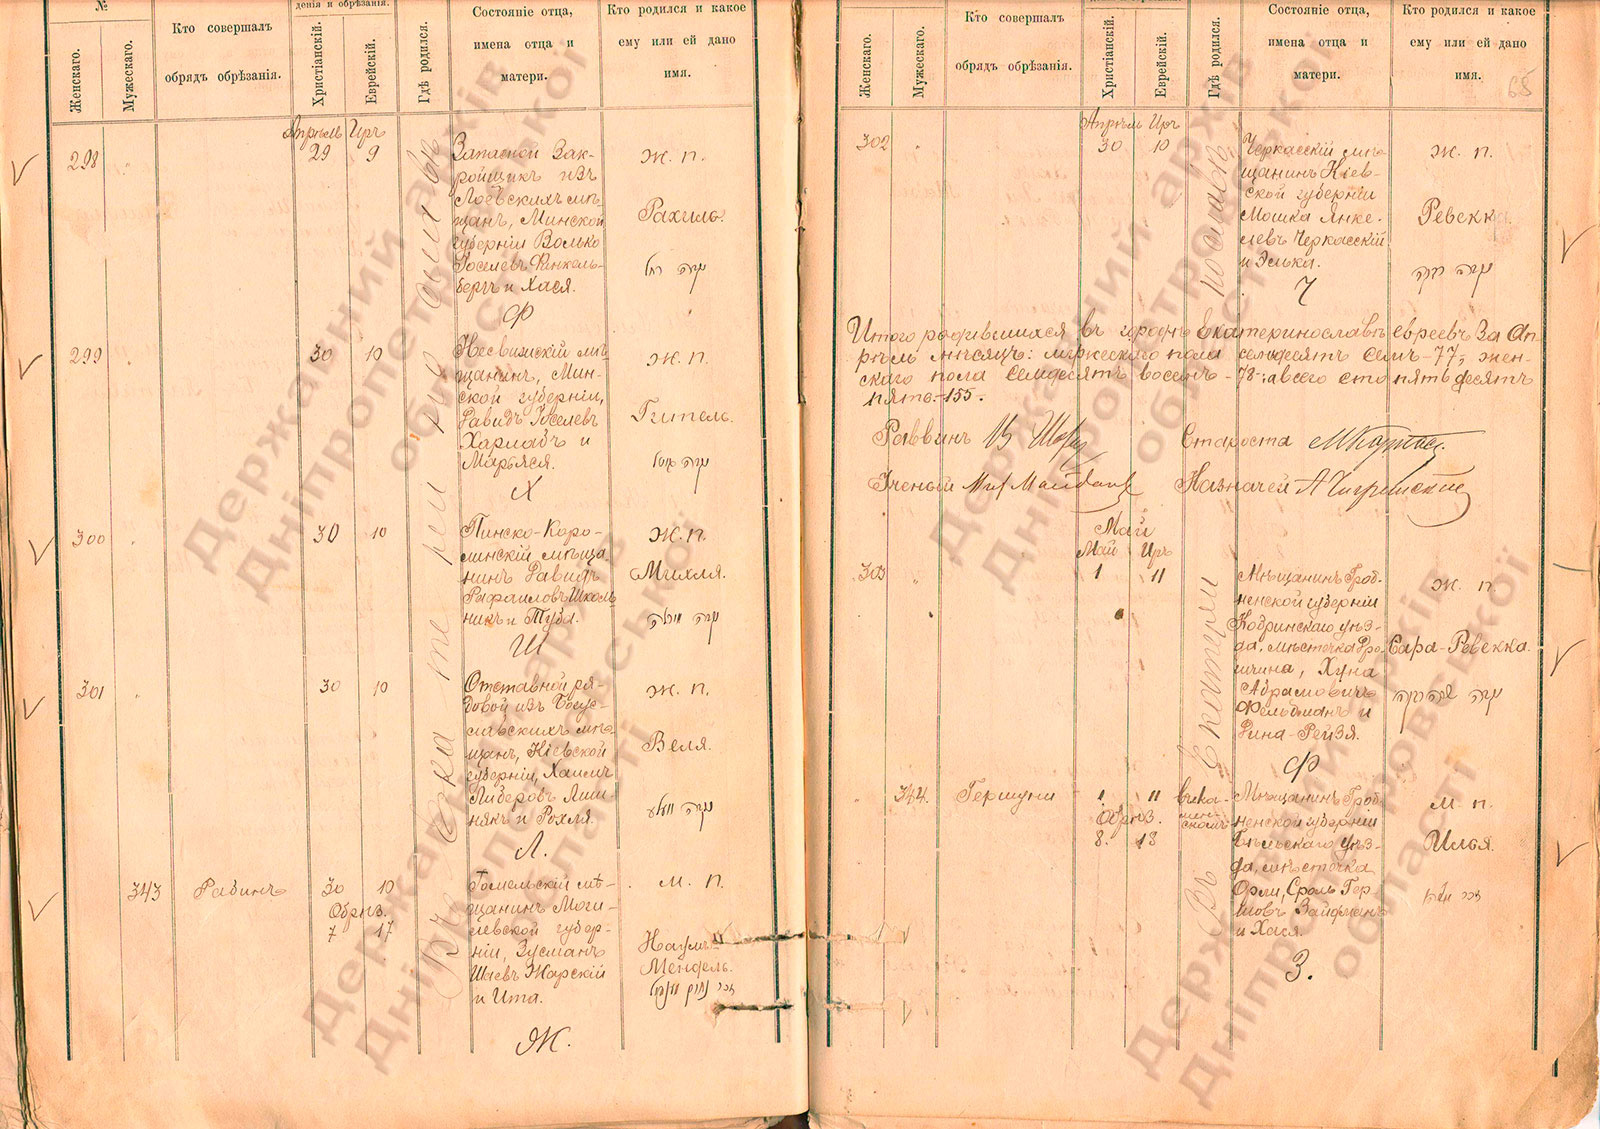 №
дения и обрѣзанія.
Женскаго.
Мужескаго.
Кто совершалъ
обрядъ обрѣзанія.
Христіанскій.
Еврейскій.
Гдѣ родился.
Состояніе отца,
имена отца и
матери.
Кто родился и какое
ему или ей дано
имя.
Апрѣль Иръ
298
29 9
Запасной Зак-
ройщикъ изъ
Лоевскихъ мѣ-
щанъ, Минской
губерніи Волько
Іоселевъ Финкель-
бергъ и Хася.
Ф
Ж. п.
Рахиль.
299
30 10
Несвижскій мѣ-
щанинъ, Мин-
ской губерніи,
Давидъ Іоселевъ
Харлабъ и
Марьяся.
Х
Ж. п.
Гитель.
300
30 10
Пинско-Каро-
линскій мѣща-
нинъ Давидъ
Рафаиловъ Школь-
никъ и Тубл.
Ш
Ж. п.
Михля.
301
30 10
Отставной ря-
довой изъ Богус-
лавскихъ мѣ-
щанъ, Кіевской
губерніи, Хаимъ
Либеровъ
и Рохля.
Л.
Ж. п.
Веля.
343
Рабинъ
30 10
Обрѣз.
7 17
Гомельскій мѣ-
щанинъ Моги-
левской губер-
ніи, Зусманъ
Шаевъ Жарскій
и Ита.
Ж.
М. п.
Наумъ-
Мендель.
Женскаго.
Мужескаго.
Кто совершалъ
обрядъ обрѣзанія.
Христіанскій.
Еврейскій.
Гдѣ родился.
Состояніе отца,
имена отца и
матери.
Кто родился и какое
ему или ей дано
имя.
65
Апрѣль Иръ
302
30 10
Черкасскій мѣ-
щанинъ Кіев-
ской губерніи
Мошка Янке-
левъ Черкасскій
и Элька.
Ч
Ж. п.
Ревекка
Итого родившихся въ городѣ Екатеринославѣ евреевъ за Ап-
рѣль мѣсяцъ: мужескаго пола семьдесятъ семь-77, жен-
скаго пола семдесятъ восемь-78-; а всего сто пятьдесятъ
пять-155.
Раввинъ
Староста
Ученый
Казначей
Май
Май Иръ
303
1 11
Мѣщанинъ Грод-
ненской губерніи
Кобринскаго уѣз-
да, мѣстечка Дро-
гичина, Хуна
Абрамовичъ
Фельдманъ и
Дина-Рейзя.
Ф
Ж. п.
Сара-Ревекка.
344.
Гершуни
1 11
Обрѣз.
8. 18
Мѣщанинъ Грод-
ненской губерніи
Бѣльскаго уѣз-
да, мѣстечка
Орли, Сроль Гер-
шовъ Зайфманъ
и Хася.
З.
М. п.
Илья.
Державний архів
Дніпропетровської
області